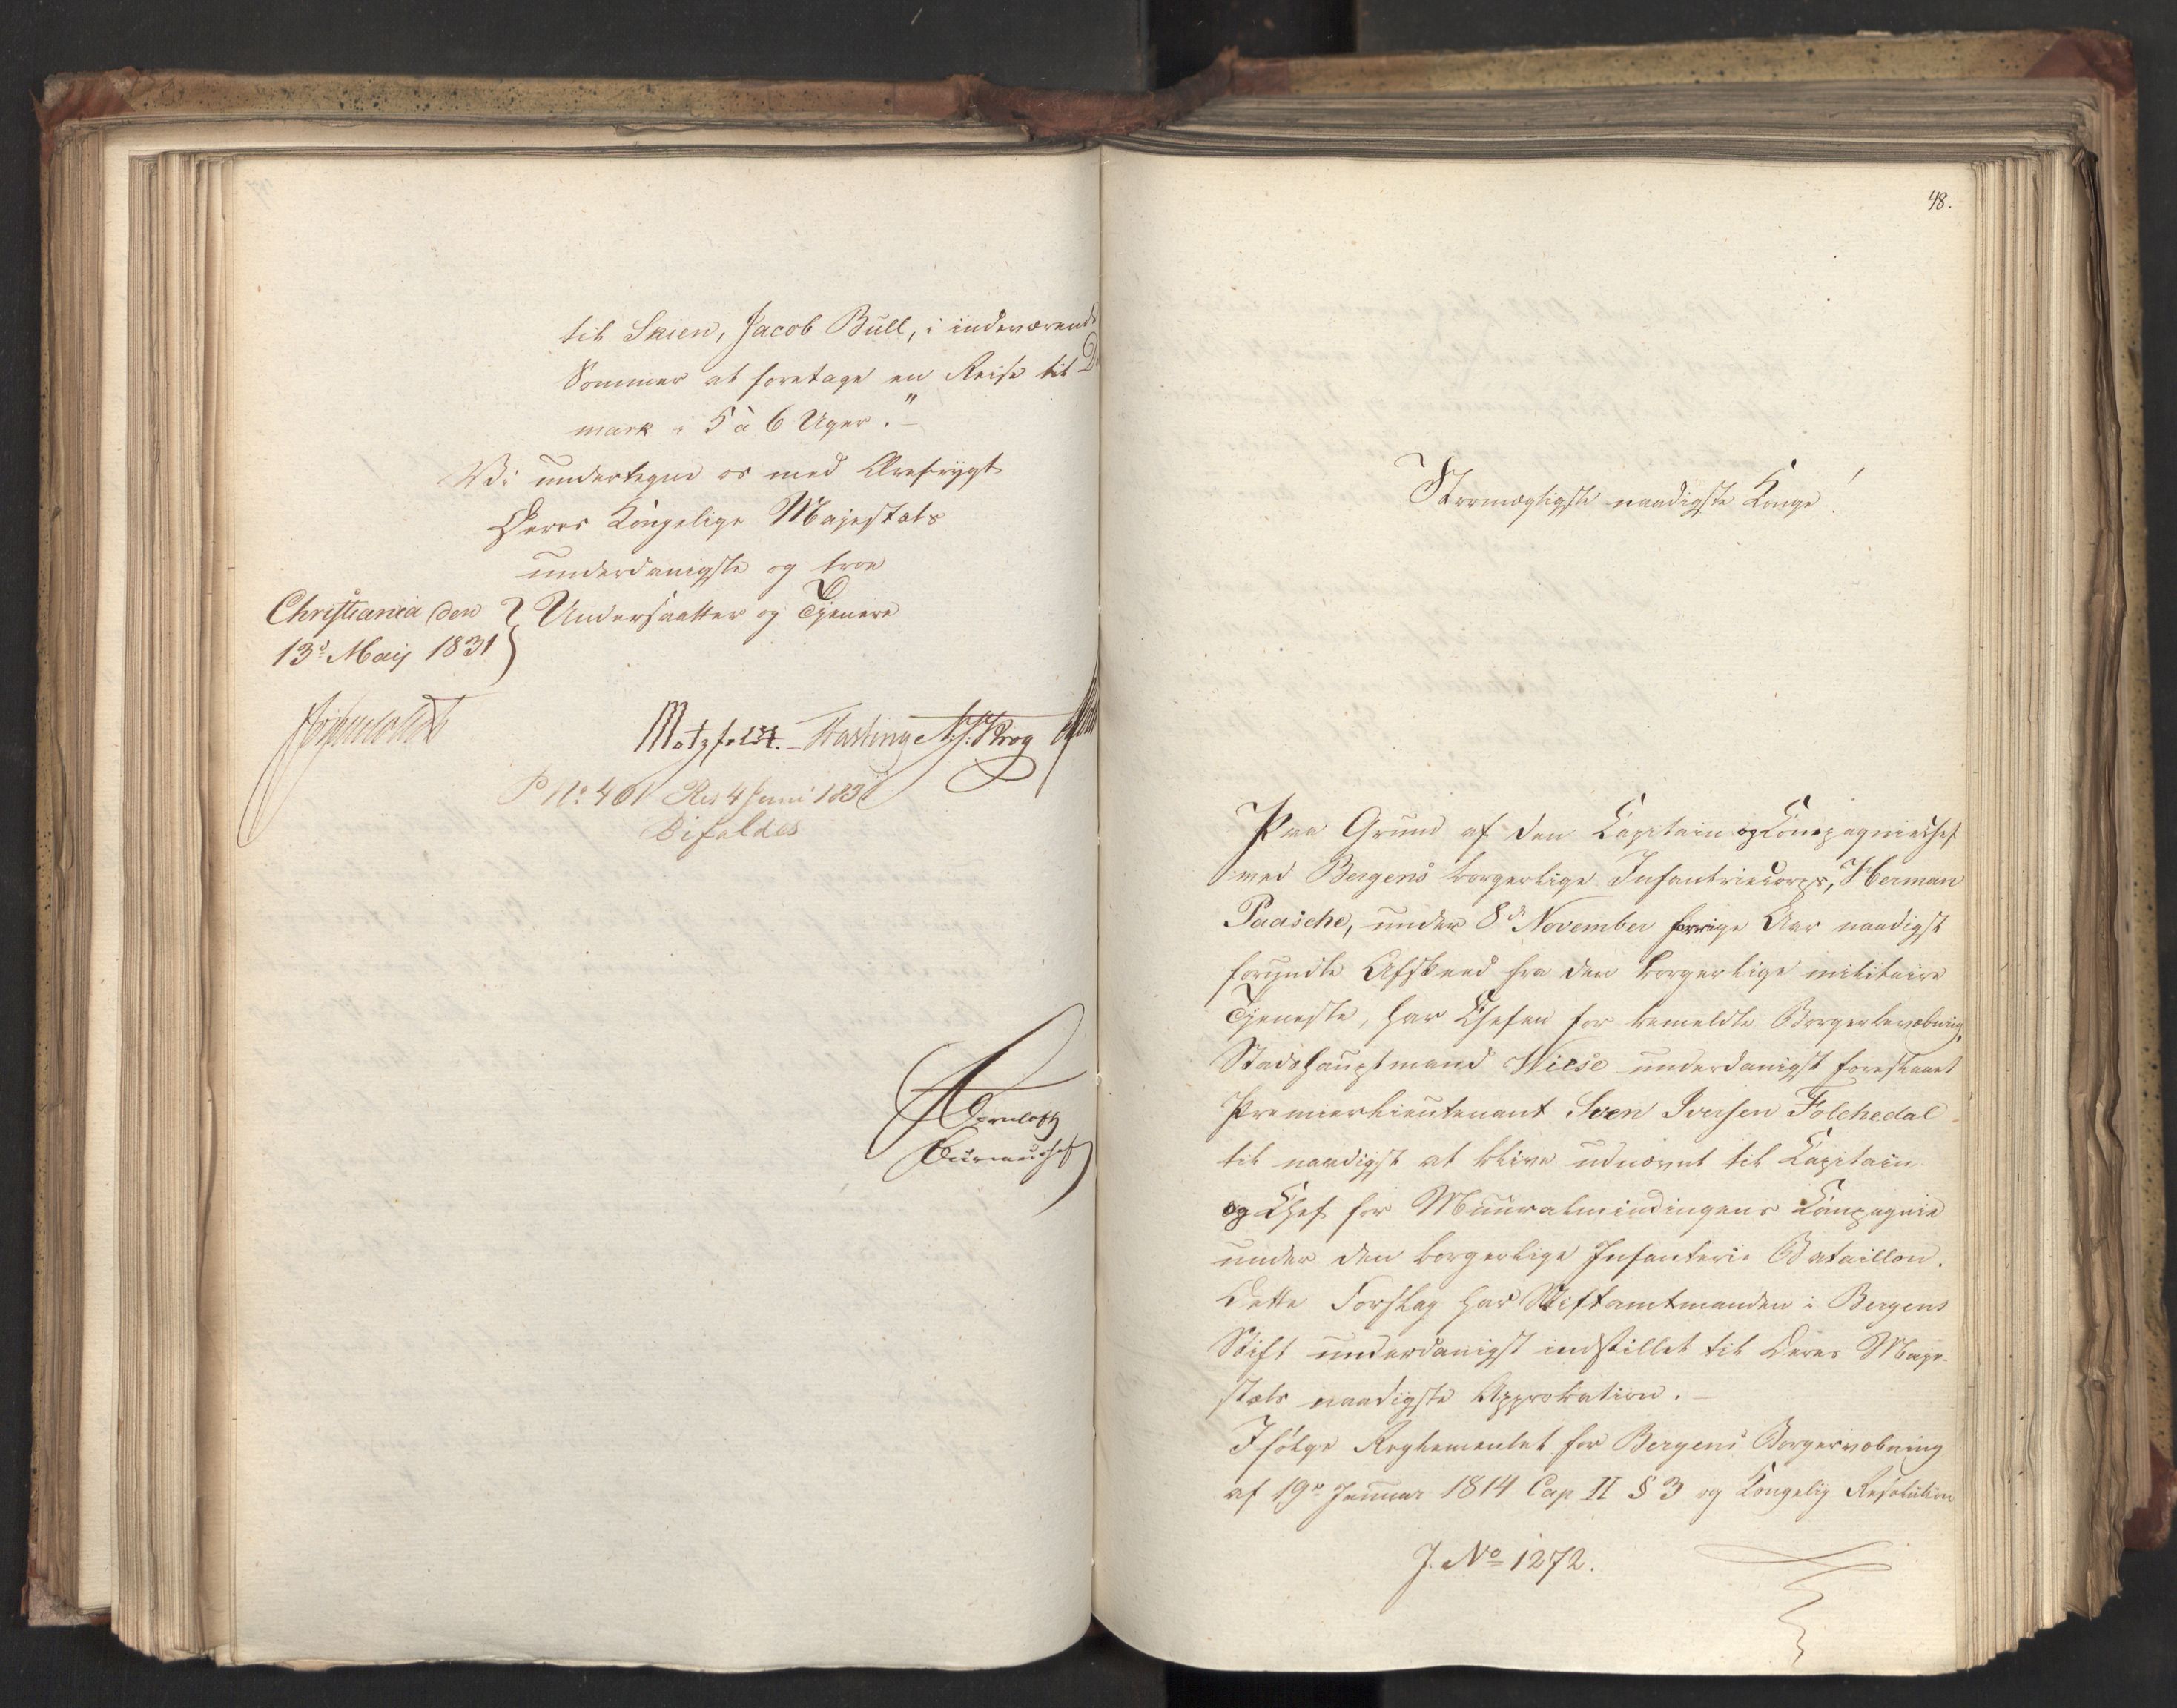 til Skien, Jacob Bull, i indeværende
Sommer at foretage en Reise til D
mark i 5 à 6 Uger."
Vi undertegne os med Ærefrygt
Deres Kongelige Majestæts
underdanigste og troe
Christiania den Undersaatter og Tjenere
13de Maij 1831
Motzfeldt. Fasting N:J:Krog
P No 461 Res 4 Juni 1831
Bifaldes
48.
Stormægtigste naadigste Konge!
Paa Grund af den Capitain og Compagniechef
ved Bergens borgerlige Infantriecorps, Herman
Paasche, under 8de November forrige Aar naadigst
forundte Afskeed fra den borgerlige militaire
Tjeneste, har Chefen for bemeldte Borgerbevæbning,
Stadshauptmand Wiese underdanigst foreslaaet
Premierlieutenant Sven Iversen Folchedal
til naadigst at blive udnævnt til Capitain
og Chef for Muuralmindingens Compagnie
under den borgerlige Infanterie Bataillon.
Dette Forslag har Stiftamtmanden i Bergens
Stift underdanigst indstillet til Deres Maje-
stæts naadigste Approbation.
Ifølge Reglementet for Bergens Borgervæbning
af 19de Januar 1814 Cap II § 3 og Kongelig Resolution
J. No 1272.